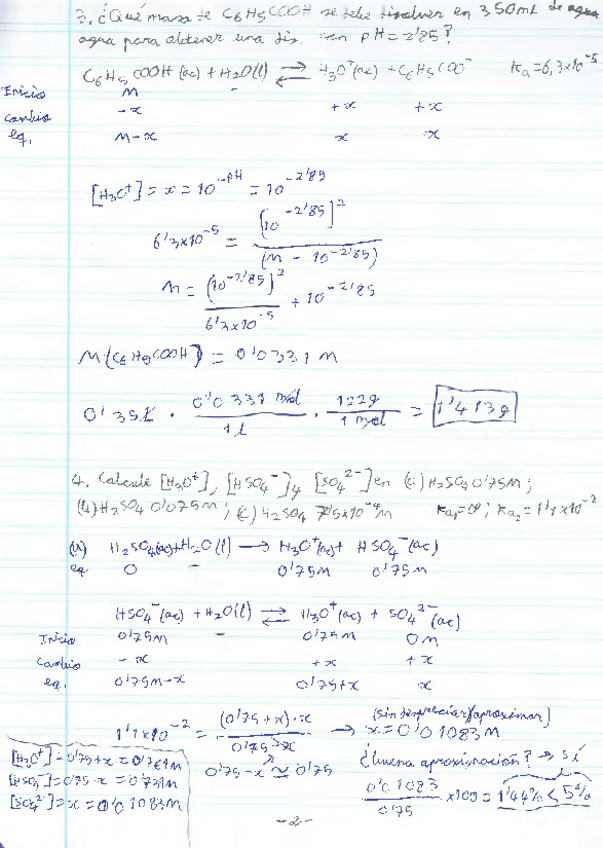 3. ¿Qué masa de C6H5COOH se debe disolver en 350 mL de agua
agua para obtener una dis. con pH = 2'85?
C6H5COOH(ac) + H2O(l) ⇌ H3O+(ac) + C6H5COO-    Ka = 6,3x10^-5
Inicio M -
Cambio -x +x +x
eq. M-x x x
[H3O+] = x = 10^-pH = 10^-2'85
6'3x10^-5 = [10^-2'85]^2 / (M - 10^-2'85)
M = (10^-2'85)^2 / 6'3x10^-5 + 10^-2'85
M(C6H5COOH) = 0'0331 M
0'35L · 0'0331 mol / 1L · 122g / 1 mol = 1'413g
4. Calcule [H3O+], [HSO4-] y [SO4^2-] en (a) H2SO4 0'75M;
(b) H2SO4 0'075M; (c) H2SO4 7'5x10^-4M    Ka1=∞; Ka2 = 1'1x10^-2
(a) H2SO4(ac) + H2O(l) → H3O+(ac) + HSO4-(ac)
eq. 0 - 0'75M 0'75M
HSO4-(ac) + H2O(l) ⇌ H3O+(ac) + SO4^2-(ac)
Inicio 0'75M - 0'75M 0M
Cambio -x +x +x
eq. 0'75M-x 0'75+x x
1'1x10^-2 = (0'75+x)·x / 0'75-x → (sin despreciar/aproximar) x = 0'01083M
0'75-x ≃ 0'75
[H3O+] = 0'75+x = 0'761M
[HSO4-] = 0'75-x = 0'739M
[SO4^2-] = x = 0'01083M
¿buena aproximación? → Sí
0'01083 / 0'75 x100 = 1'44% < 5%
-2-